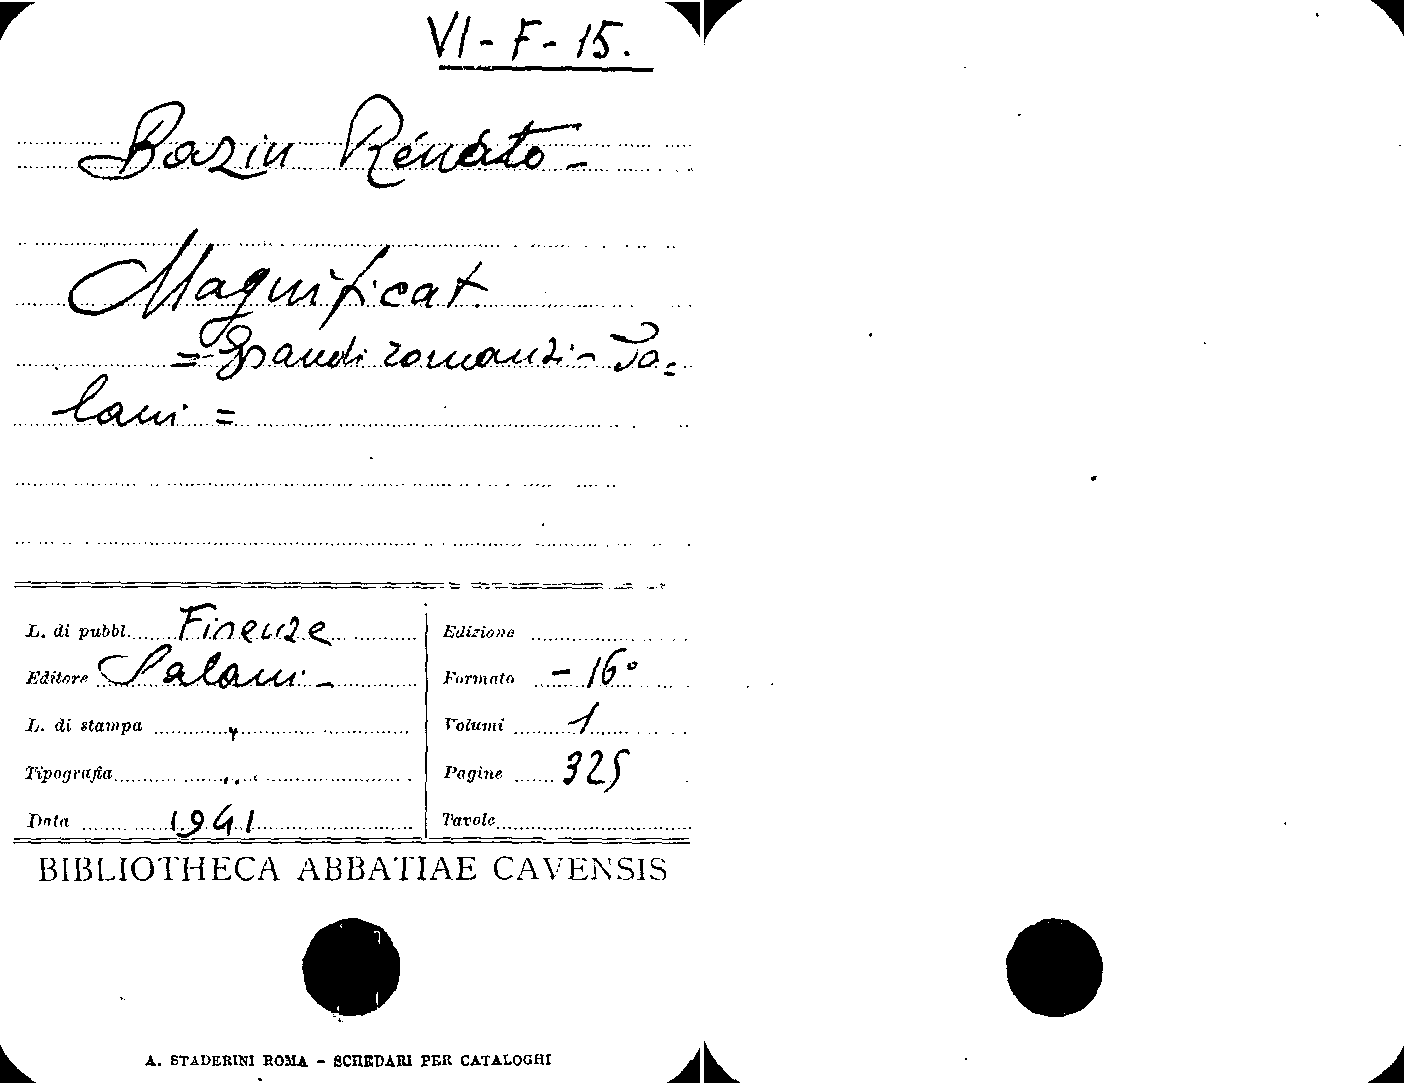 VI - F - 15.
Bazin Renato -
Magnificat.
= Grandi romanzi - Sa=
lani =
L. di pubbl. Firenze
Editore Salani -
L. di stampa "
Tipografia "
Data 1941
Edizione
Formato - 16°
Volumi 1
Pagine 325
Tavole
BIBLIOTHECA ABBATIAE CAVENSIS
A. STADERINI ROMA - SCHEDARI PER CATALOGHI